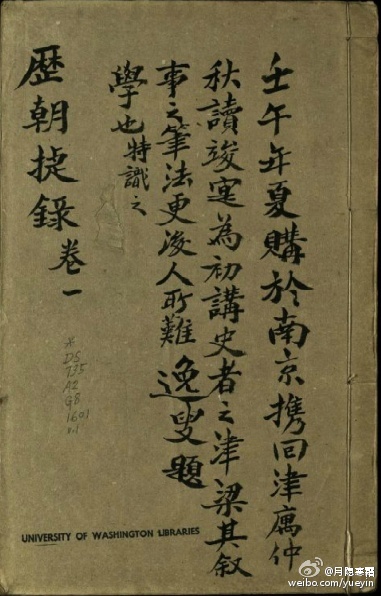 壬午年夏購於南京携回津庽仲
秋讀竣寔為初講史者之津梁其叙
事之筆法更後人所難
學也特識之
逸叟題
歷朝捷錄 卷一
DS
735
A2
G8
1601
v.1
UNIVERSITY OF WASHINGTON LIBRARIES
@月隐寒霜
weibo.com/yueyin